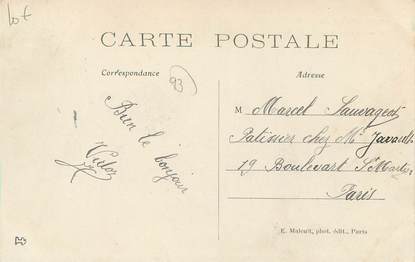 Lot
CARTE POSTALE
Correspondance
93
Adresse
Bien le bonjour
Victor
M Marcel Sauvageot
Patissier chez Mr
19 Boulevart St Martin
Paris
E. Malcuit, phot. édit., Paris